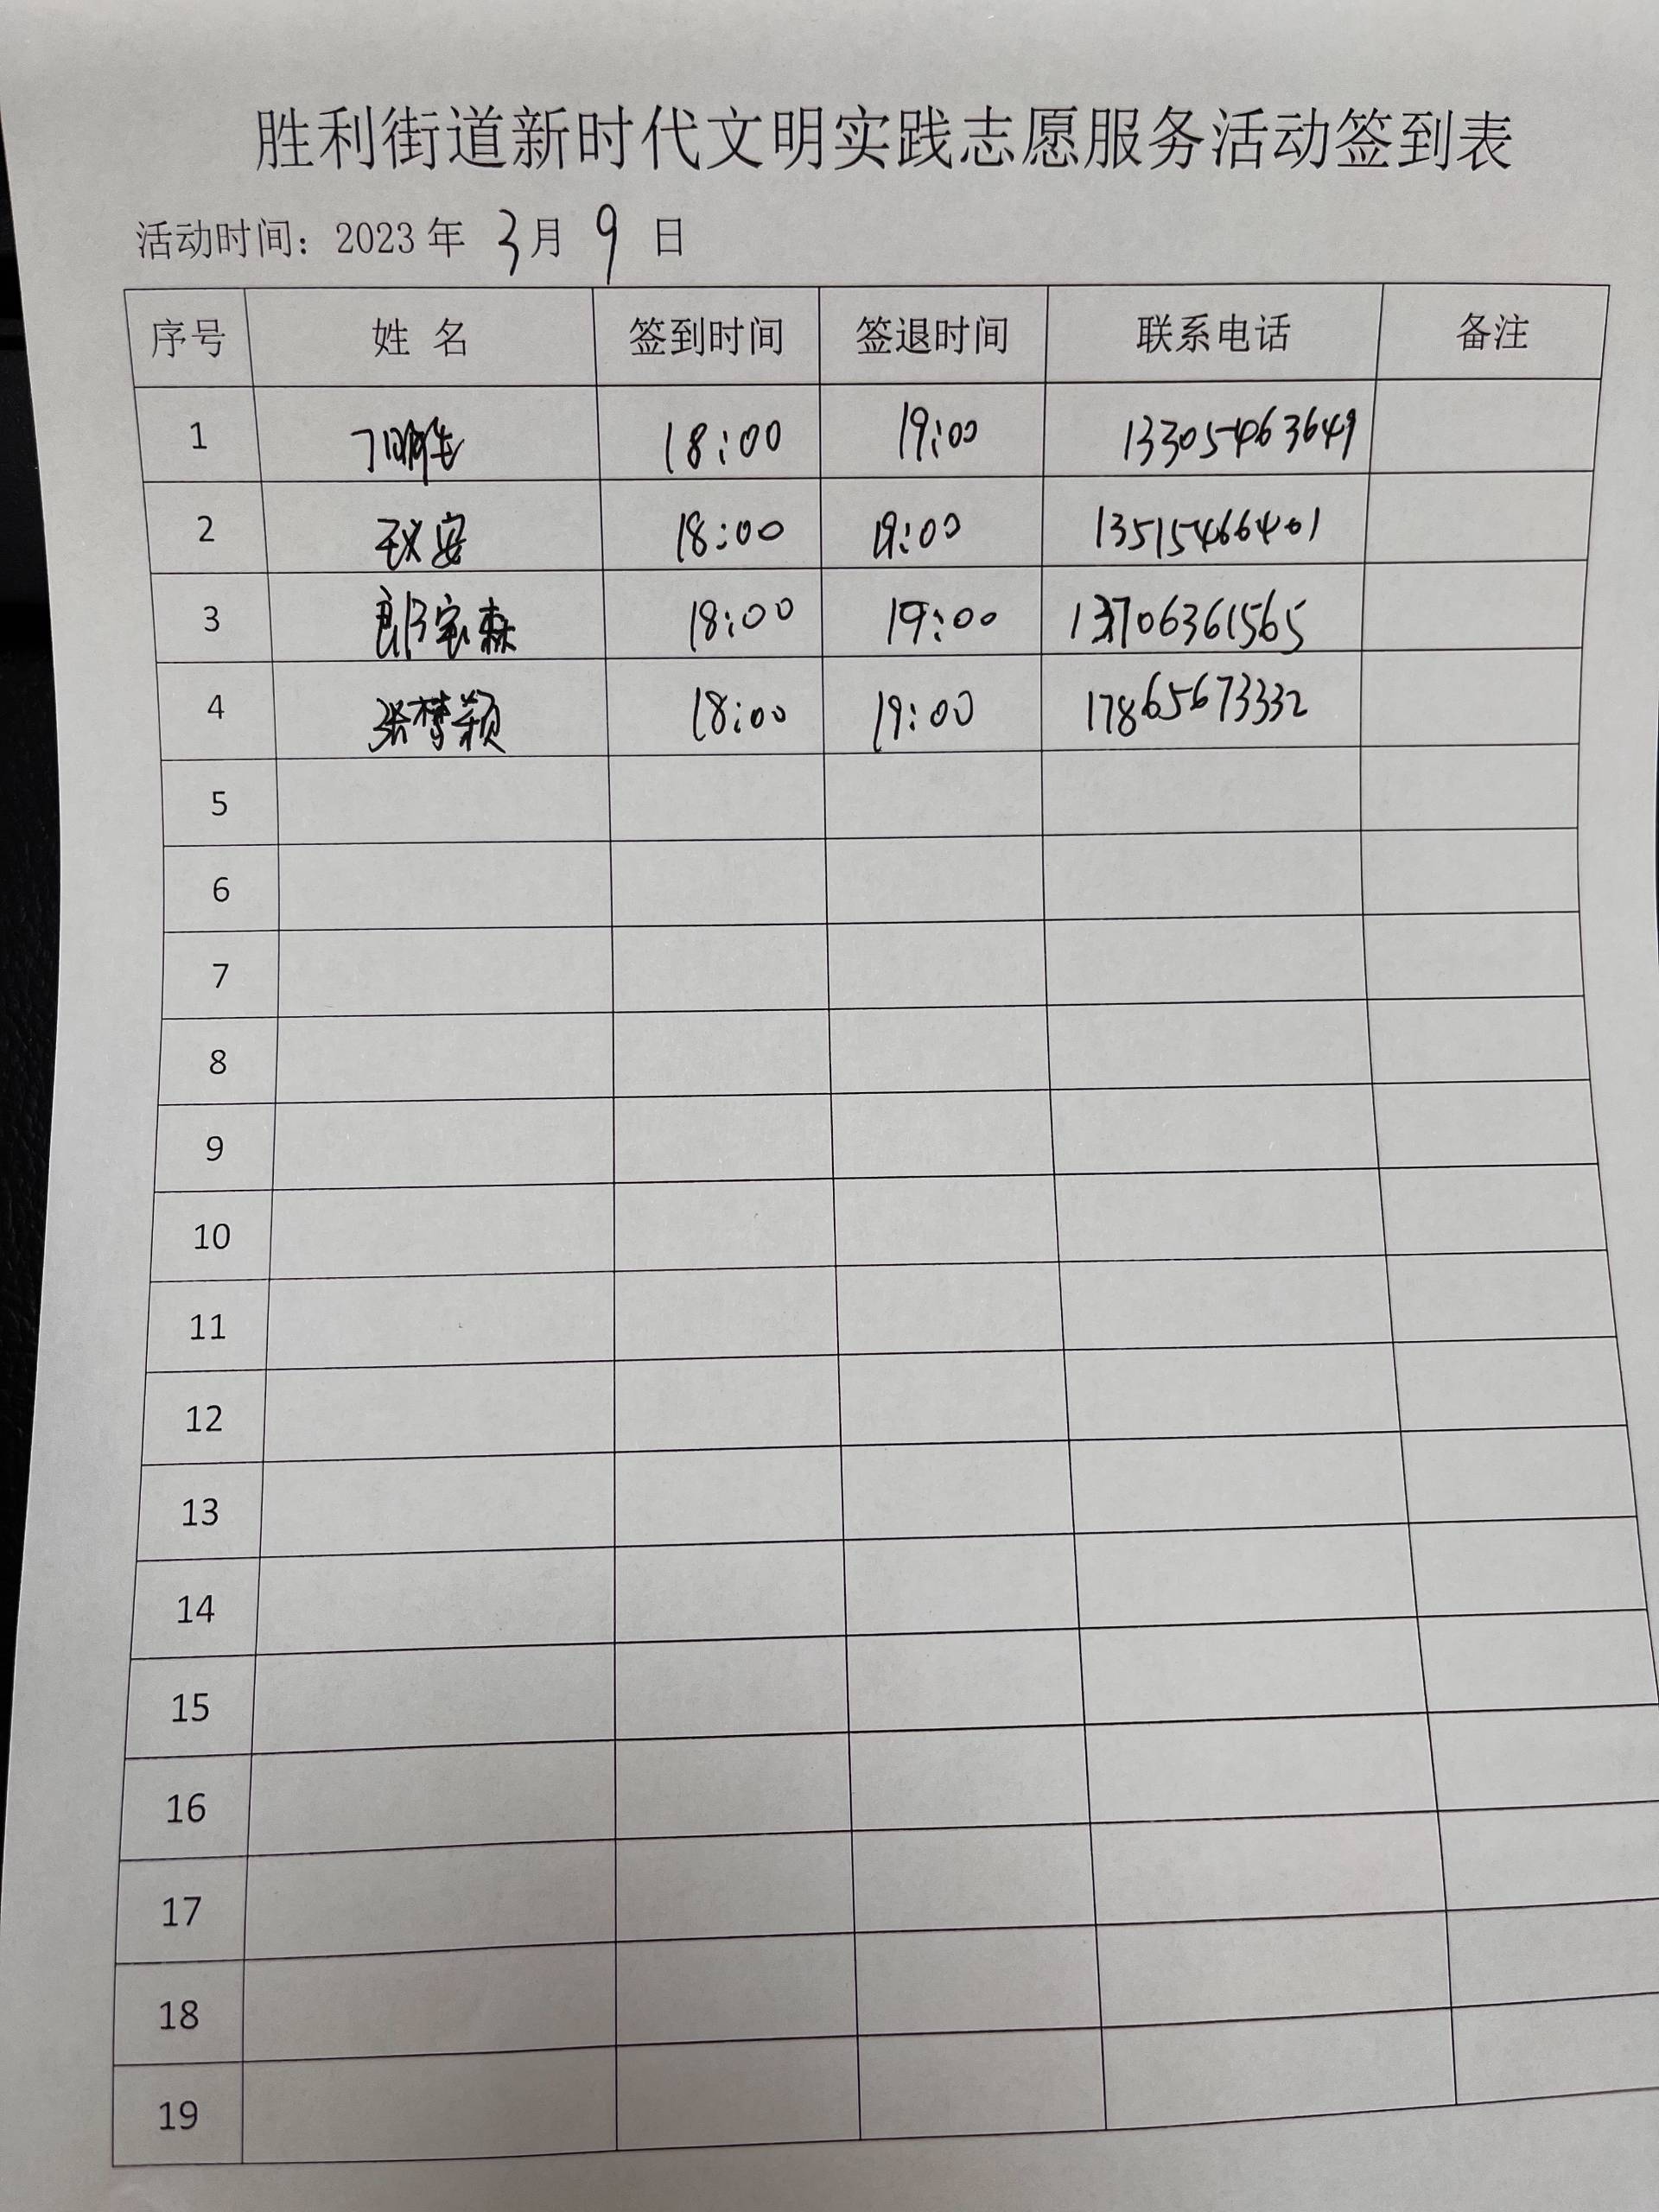 胜利街道新时代文明实践志愿服务活动签到表
活动时间：2023 年 3 月 9 日
序号 姓 名 签到时间 签退时间 联系电话 备注
1 18:00 19:00 13305463649
2 18:00 19:00 13515466401
3 郎家森 18:00 19:00 13706361565
4 张梦颖 18:00 19:00 17865673332
5
6
7
8
9
10
11
12
13
14
15
16
17
18
19